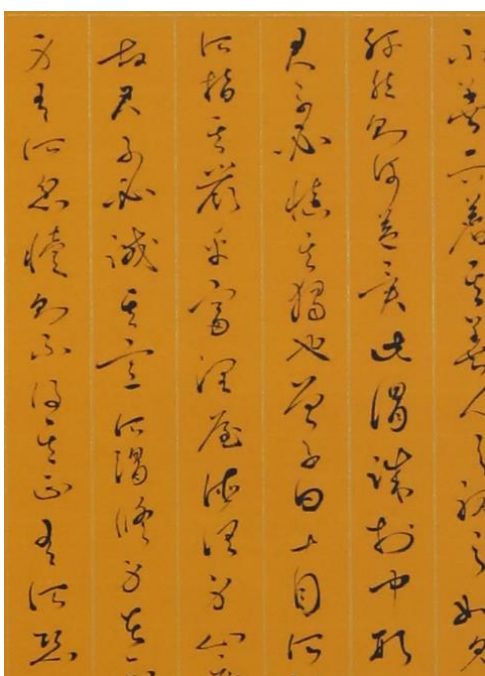 不善而著其善人之視己如見
肝然則何益矣此謂誠於中形
君子必慎其獨也曾子曰十目所
所指其嚴乎富潤屋德潤身心
故君子必誠其意所謂修身在
身有所忿懥則不得其正有所恐